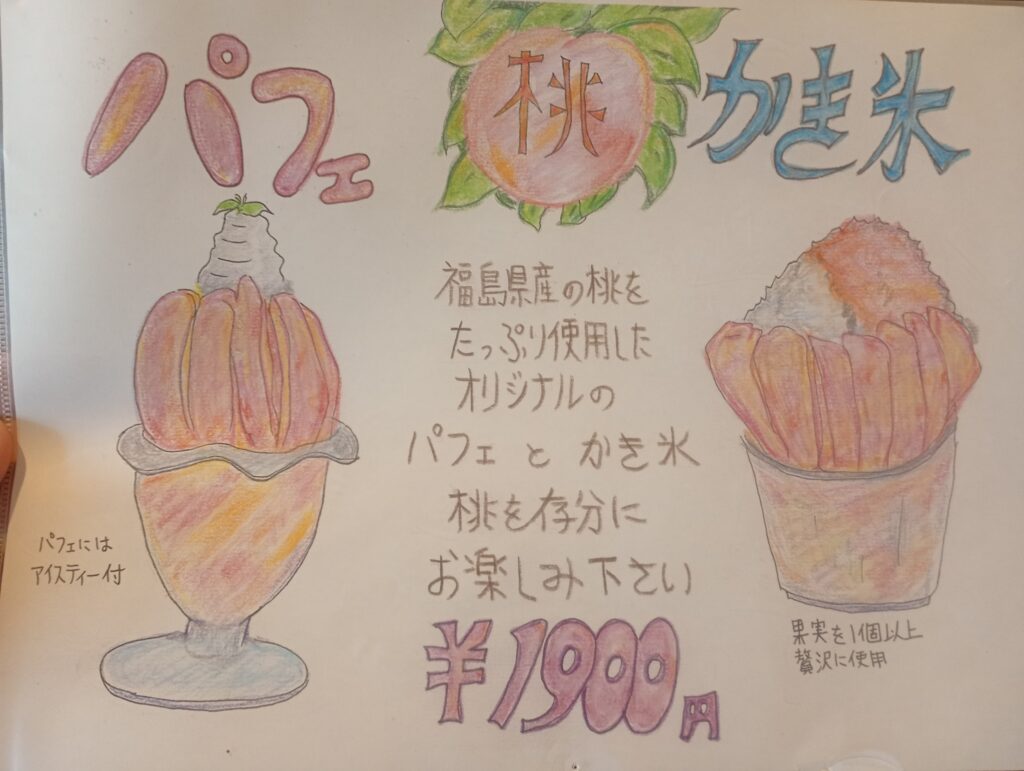 パフェ
桃
かき氷
福島県産の桃を
たっぷり使用した
オリジナルの
パフェ と かき氷
桃を存分に
お楽しみ下さい
¥1900円
パフェには
アイスティー付
果実を1個以上
贅沢に使用